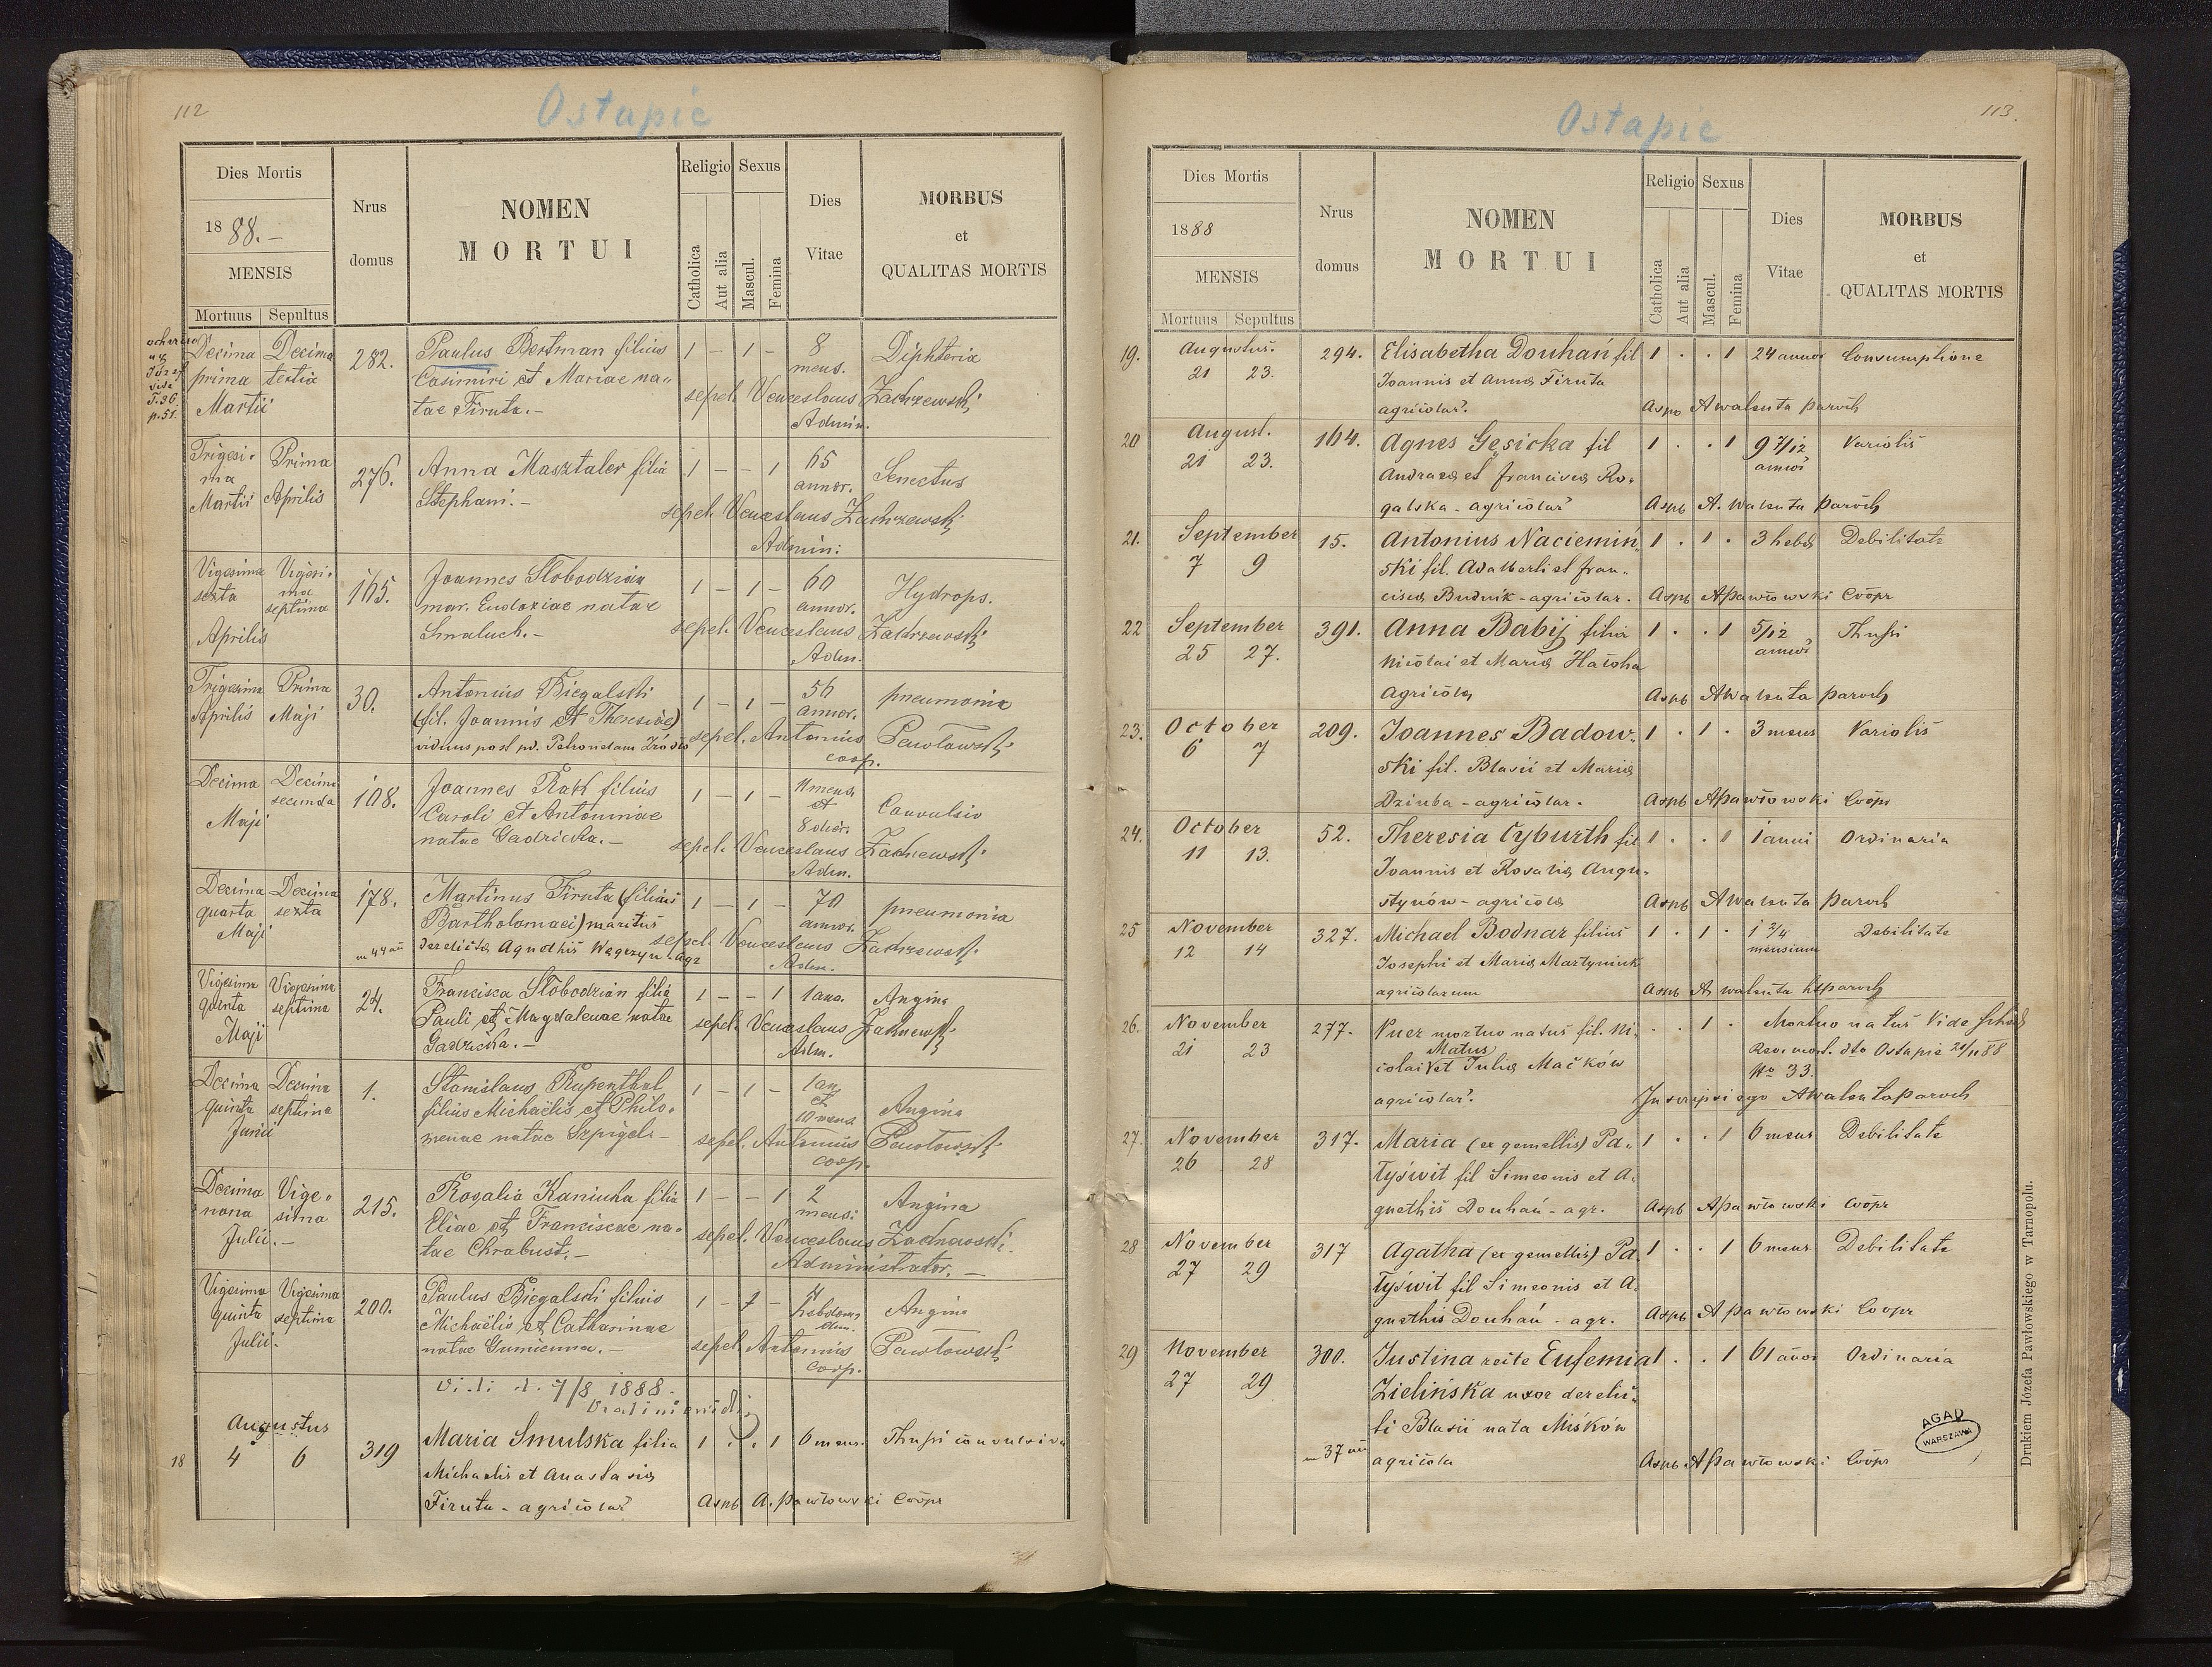 112
Ostapie
Dies Mortis
1888.-
MENSIS
Mortuus Sepultus
Nrus domus
NOMEN
MORTUI
Religio
Catholica
Aut alia
Sexus
Mascul.
Femina
Dies
Vitae
MORBUS
et
QUALITAS MORTIS
Józef
vide
T.36
p.51.
Decima Decima 282. Paulus Bertman filius 1 - 1 - 8 Diphteria
prima tertia Casimiri et Mariae na- mens.
Martii tae Firuta.- sepel. Venceslaus Zachrzewski
Admin.
Trigesi- Prima 276. Anna Masztaler filia 1 - - 1 65 Senectus
ma
Martii Aprilis Stephani.- annor.
sepel. Venceslaus Zachrzewski
Admin:
Vigesima Vigesi- 165. Joannes Słobodzian 1 - 1 - 60 Hydrops.
sexta ma mar. Eudoxiae natae annor.
septima
Aprilis Smaluch.- sepel. Venceslaus Zachrzewski
Adm.
Trigesima Prima 30. Antonius Biegalski 1 - 1 - 56 pneumonia
Aprilis Maji (fil. Joannis et Theresiae) annor.
viduus post pd. Petronelam sepel. Antonius Pawłowski
coop.
Decima Decima 108. Joannes Rakł filius 1 - 1 - 11 mens. Convulsio
secunda Caroli et Antoninae et
Maji 8 dier.
natae Gadzicka.- sepel. Venceslaus Zachrzewski
Adm.
Decima Decima 178. Martinus Firuta (filius 1 - 1 - 70 pneumonia
quarta sexta Bartholomaei) maritus annor.
Maji derelictae Agnethis Węgrzyn - agr sepel. Venceslaus Zachrzewski
Adm.
Vigesima Vigesima 24. Franciska Słobodzian filia 1 - - 1 1 ann. Angina
quinta septima Pauli et Magdalenae natae sepel. Venceslaus Zachrzewski
Maji Gadzicka.- Adm.
Decima Decima 1. Stanislaus Rupenthal 1 - 1 - 1 an. Angina
quinta septima filius Michaëlis et Philo- et
Junii 10 mens.
menae natae Szpigel- sepel. Antonius Pawłowski
coop.
Decima Vige- 215. Rosalia Kaniuka filia 1 - - 1 2 Angina
nona sima Eliae et Franciscae na- mens:
Julii.- tae Chrabust.- sepel. Venceslaus Zachrzewski.
Administrator.-
Vigesima Vigesima 200. Paulus Biegalski filius 1 - 1 - Angina
quinta septima Michaëlis et Catharinae hebdom.
Julii. natae Gumienna.- sepel. Antonius Pawłowski
coop.
Vidi d. 7/8 1888.
Augustus
18 4 6 319 Maria Smulska filia 1 . . 1 6 mens. Thussi convulsiva
Michaelis et Anastasia
Firuta - agricolar. Aspb A. Pawłowski Coopr
113.
Ostapie
Dies Mortis
1888
MENSIS
Mortuus Sepultus
Nrus
domus
NOMEN
MORTUI
Religio
Catholica
Aut alia
Sexus
Mascul.
Femina
Dies
Vitae
MORBUS
et
QUALITAS MORTIS
19. Augustus. 294. Elisabetha Douhań fil 1 . . 1 24 annor Consumptione
21 23. Joannis et Anna Firuta
agricolar. Aspb AWałuta paroch
20 August. 164. Agnes Gęsicka fil 1 . . 1 9 7/12 Variolis
21 23. Andreae et Francisca Ro- annor
galska - agricolar. Aspb A. Wałuta paroch
21. September 15. Antonius Naciemiń 1 . 1 . 3 hebd Debilitate
7 9 ski fil. Adalberti et Fran-
cisca Budnik - agricolar. Aspb APawłowski Coopr
22 September 391. Anna Babij filia 1 . . 1 5/12 Thussi
25 27. Nicolai et Maria annor
agricola Aspb AWałuta paroch
23. October 209. Joannes Badow- 1 . 1 . 3 mens Variolis
6 7 ski fil. Blasii et Maria
Dziuba - agricolar. Aspb APawłowski Coopr
24. October 52. Theresia Cyburth fil 1 . . 1 1 anni Ordinaria
11 13. Joannis et Rosalia Augu-
stynów - agricola Aspb AWałuta paroch
25 November 327. Michael Bodnar filius 1 . 1 . 1 2/4 Debilitate
12 14 Josephi et Maria Martyniuk mensium
agricolarum Aspb A Wałuta paroch
26. November 277. Puer mortuo natus fil. Ni- . . 1 . Mortuo natus Vide
21 23 Matus Revi mort. dto Ostapie 21/11 88
colai et Julia Maćków No 33.
agricolar. Inscripsi ego AWałuta paroch
27. November 317. Maria (ex gemellis) Pa- 1 . . 1 6 mens Debilitate
26 28 tyświt fil Simeonis et A-
gnethis Douhań - agr. Aspb APawłowski Coopr
28 November 317 Agatha (ex gemellis) Pa 1 . . 1 6 mens Debilitate
27 29 tyświt fil Simeonis et A-
gnethis Douhań - agr. Aspb APawłowski Coopr
29 November 300. Justina recte Eufemia 1 . . 1 61 annor Ordinaria
27 29 Zielińska uxor derelic-
ti Blasii nata Miśków
agricola Aspb APawłowski Coopr
AGAD
WARSZAWA
Drukiem Józefa Pawłowskiego w Tarnopolu.